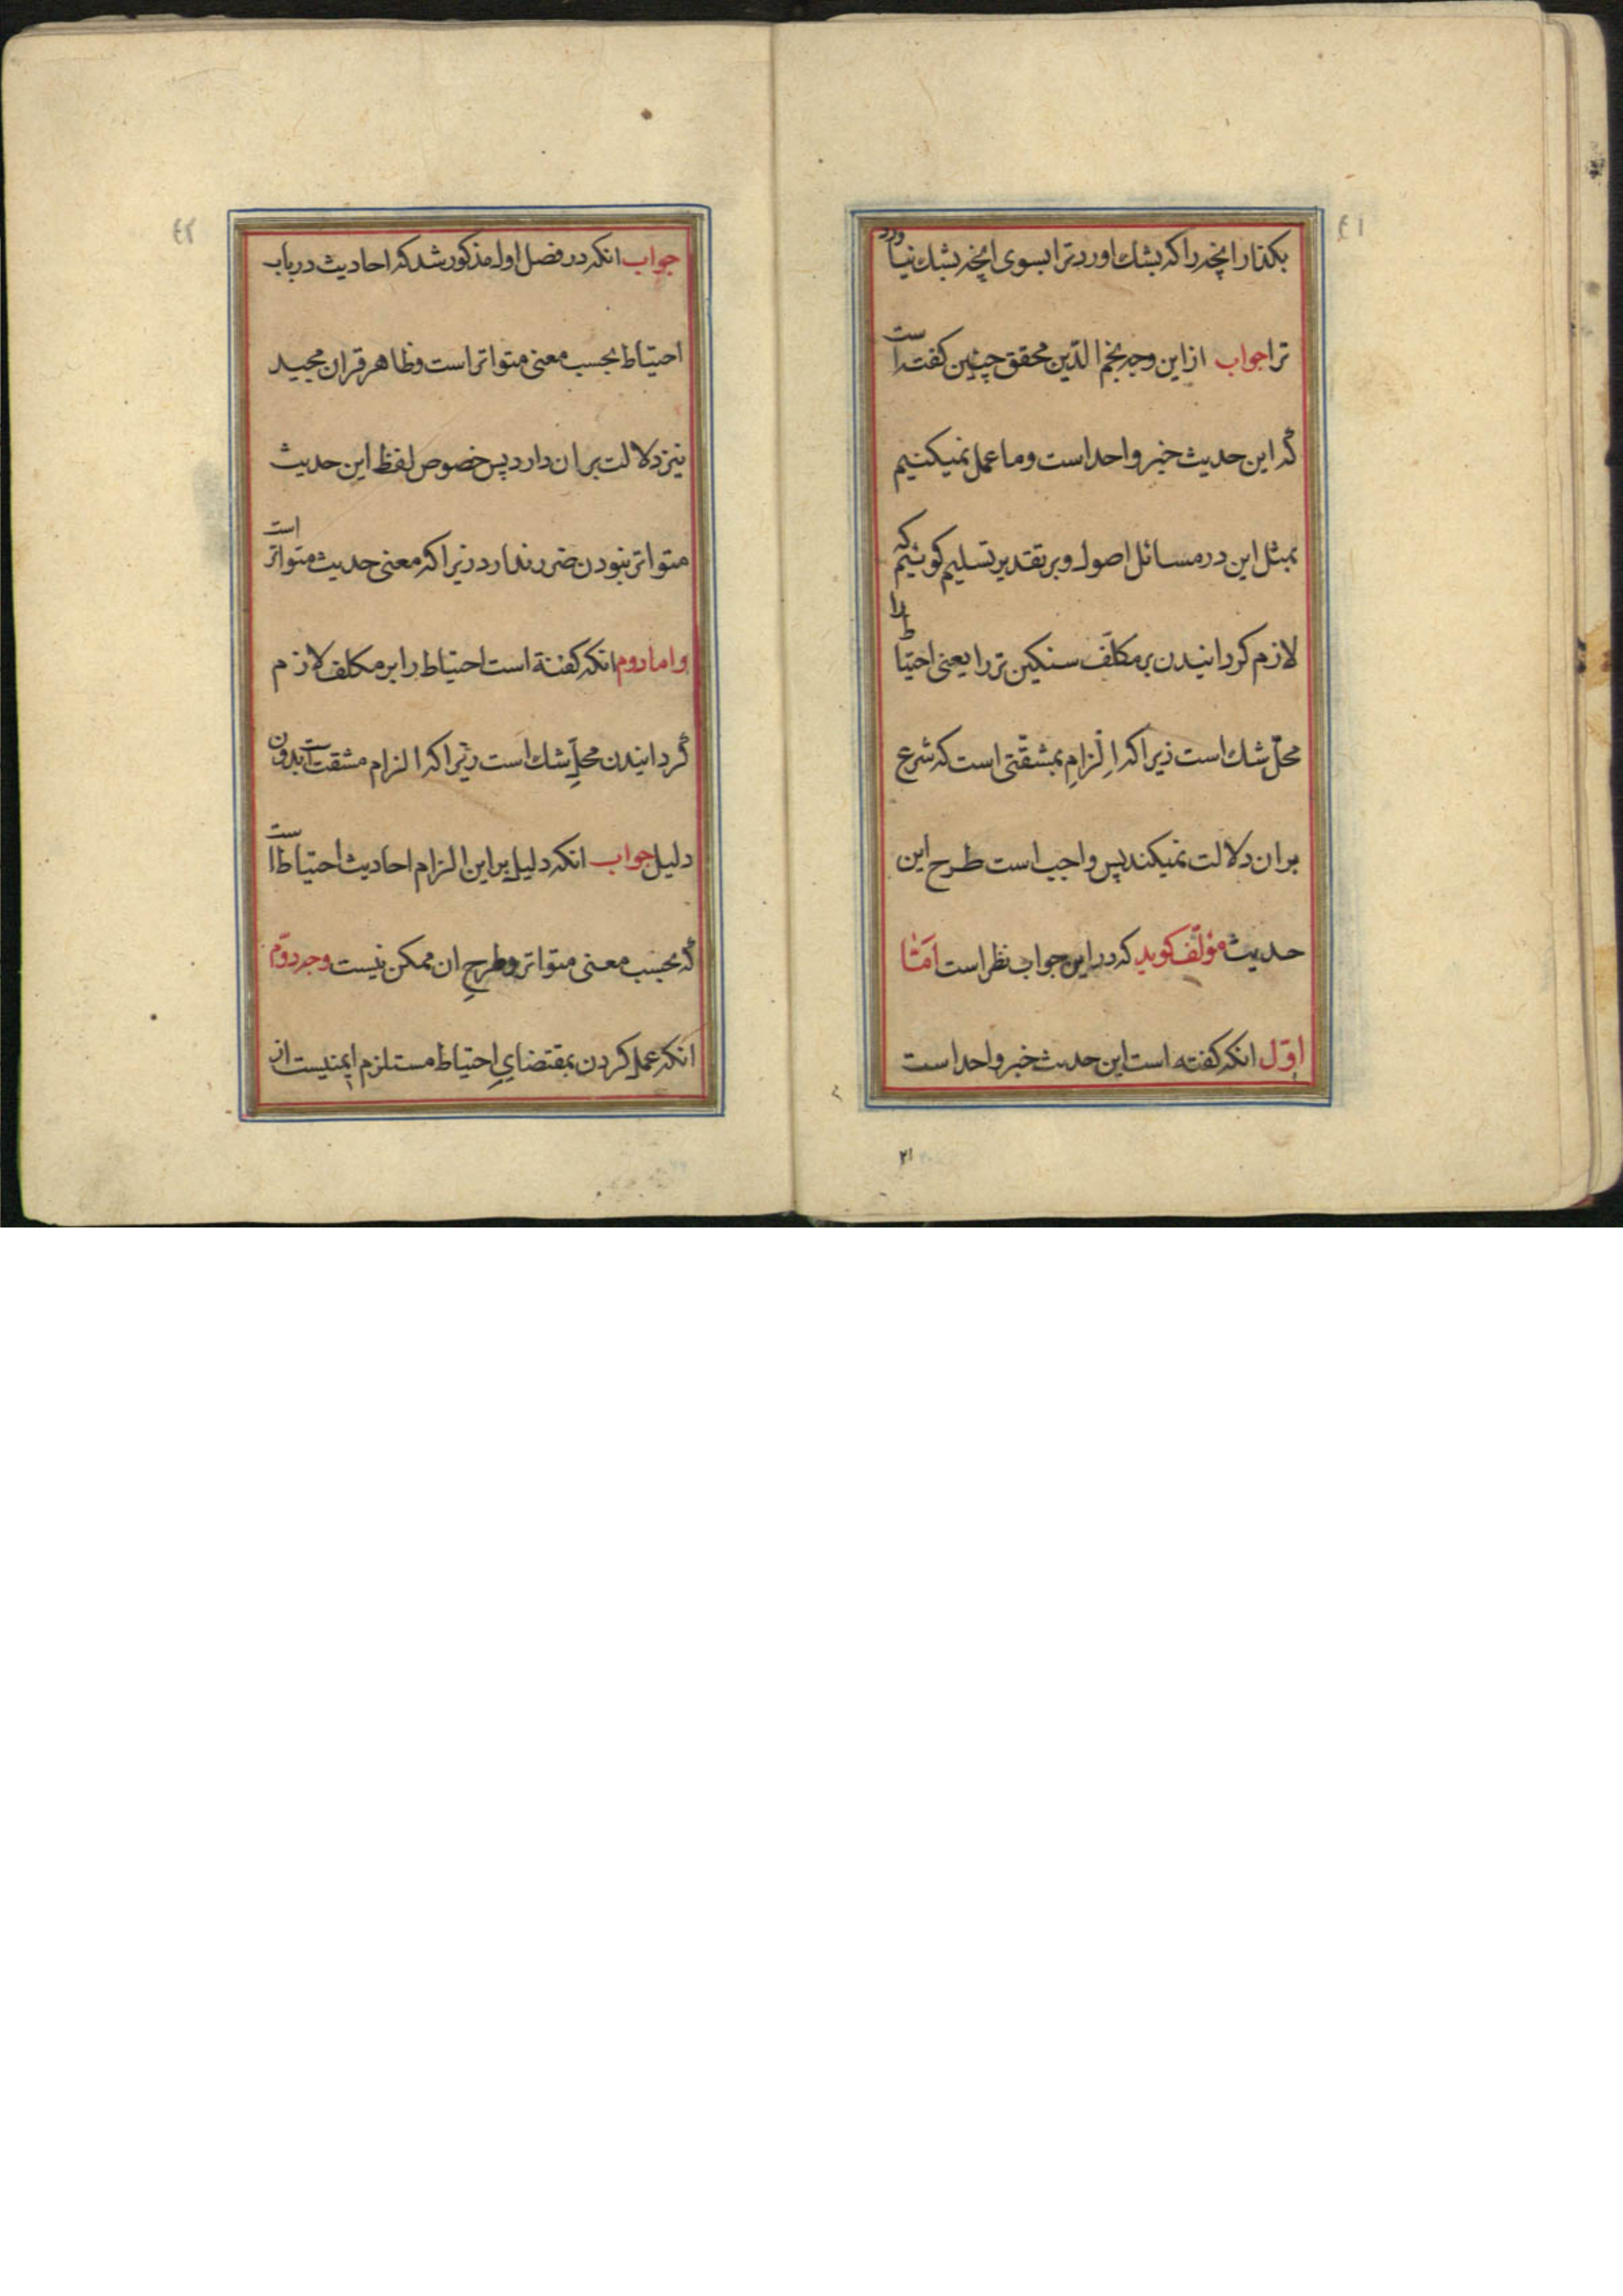 ٤١
بکذار انچه را که بشك اورد ترا بسوی انچه بشك نیاورد
ترا جواب از این وجه نجم الدّین محقق چنین کفته است
که این حدیث خبر واحد است و ما عمل نمیکنیم
بمثل این در مسائل اصول و بر تقدیر تسلیم کوئیم که
لازم کردانیدن بر مکلّف سنکین تر را یعنی احتیاط را
محلّ شك است زیرا که اِلْزامِ بمشقّتی است که شرع
بر ان دلالت نمیکند پس واجب است طرح این
حدیث مؤلّف کوید که در این جواب نظر است امّا
اوّل انکه کفته است این حدیث خبر واحد است
٢١
٤٢
جواب انکه در فصل اول مذکور شد که احادیث در باب
احتیاط بحسب معنی متواتر است و ظاهر قران مجید
نیز دلالت بر ان دارد پس خصوص لفظ این حدیث
متواتر نبودن ضرر ندارد زیرا که معنی حدیث متواتر است
و اما دوم انکه کفتة است احتیاط را بر مکلف لازم
گردانیدن محلِّ شك است زیرا که الزام مشقت است بدون
دلیل جواب انکه دلیل بر این الزام احادیث احتیاط است
که بحسب معنی متواتر و طرحِ ان ممکن نیست وجه دوّم
انکه عمل کردن بمقتضایِ احتیاط مستلزم ایمنیست از